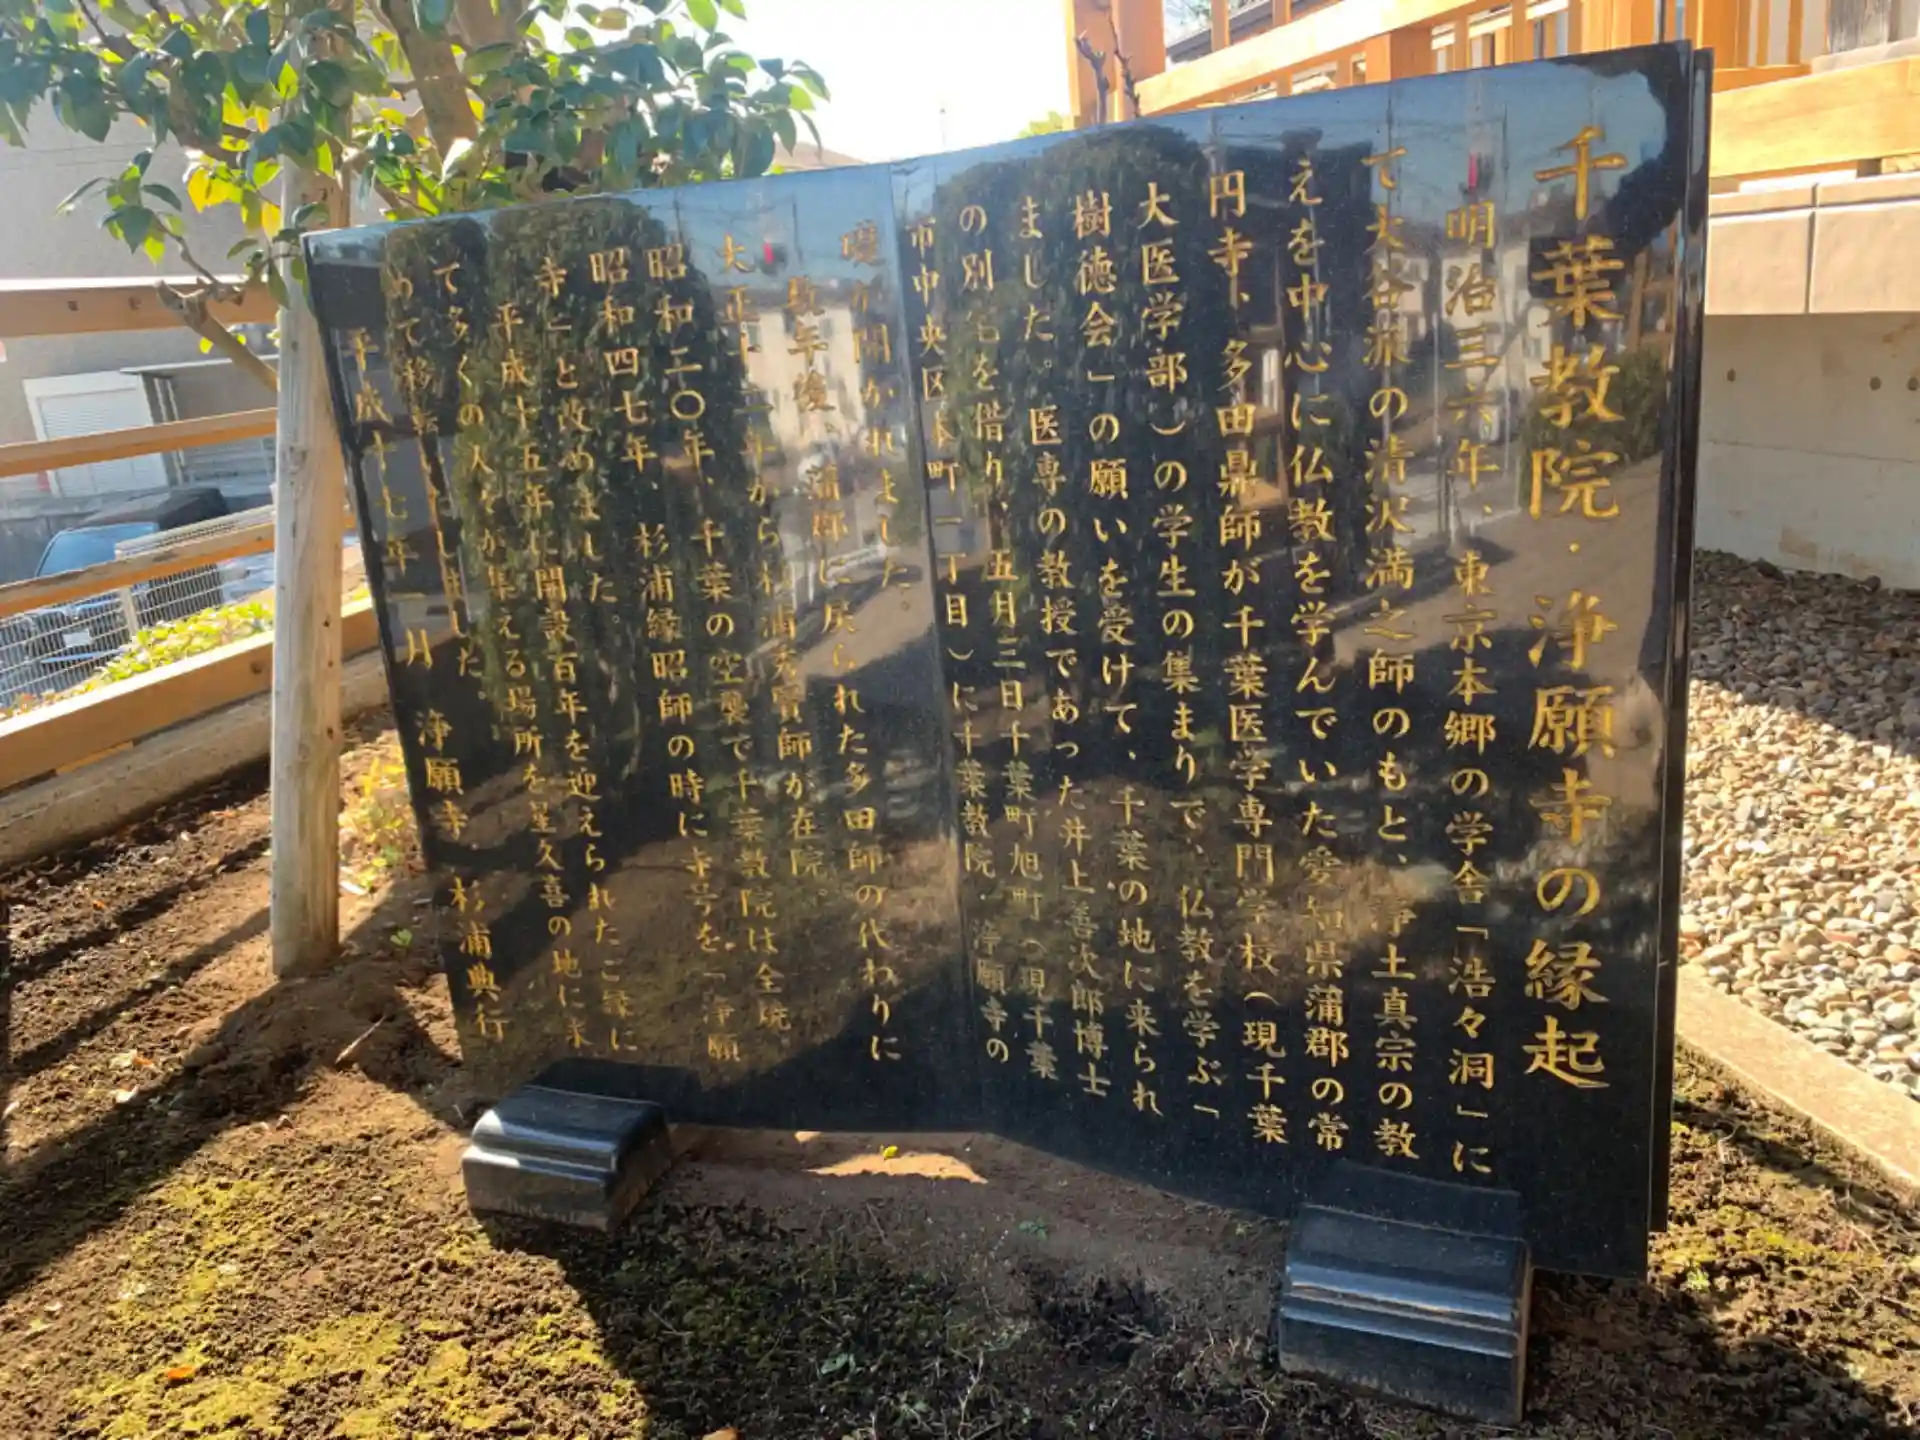 千葉教院・浄願寺の縁起
明治三六年、東京本郷の学舎「浩々洞」に
て大谷派の清沢満之師のもと、浄土真宗の教
えを中心に仏教を学んでいた愛知県蒲郡の常
円寺、多田鼎師が千葉医学専門学校(現千葉
大医学部)の学生の集まりで、仏教を学ぶ「
樹徳会」の願いを受けて、千葉の地に来られ
ました。医専の教授であった井上善次郎博士
の別宅を借り、五月三日千葉町旭町(現千葉
市中央区本町一丁目)に千葉教院・浄願寺の
礎が開かれました。
数年後、蒲郡に戻られた多田師の代わりに
大正十二年から杉浦秀寳師が在院。
昭和二〇年、千葉の空襲で千葉教院は全焼。
昭和四七年、杉浦縁昭師の時に寺号を「浄願
寺」と改めました。
平成十五年に開設百年を迎えられたご縁に
て多くの人々が集える場所を星久喜の地に求
めて移転しました。
平成十七年一月 浄願寺 杉浦典行